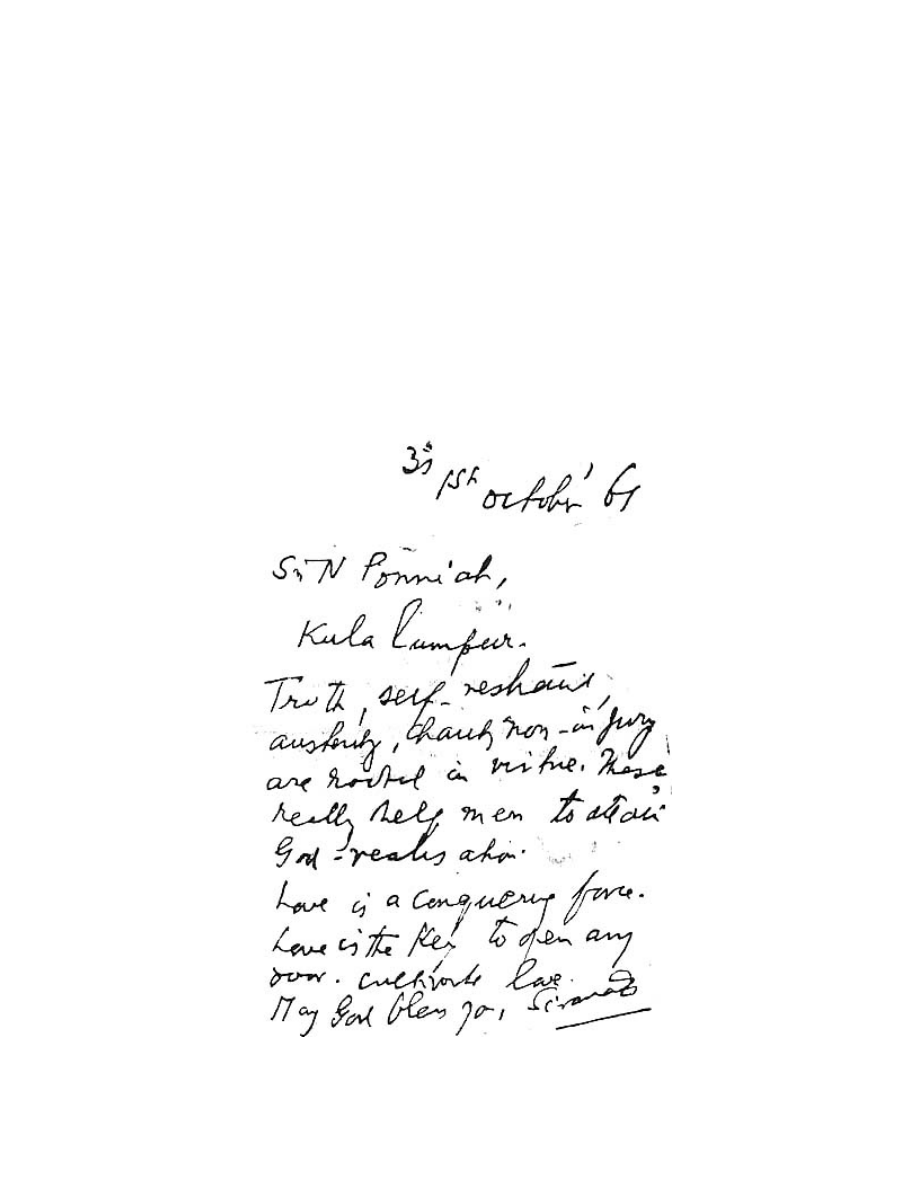 1st october' 61
Sri N Ponniah,
Kula Lumpur.
Truth, self-restraint,
austerity, charity non-injury
are rooted in virtue. These
really help men to attain
God-realisation.
Love is a conquering force.
Love is the Key to open any
door. cultivate love.
May God bless you, Sivananda